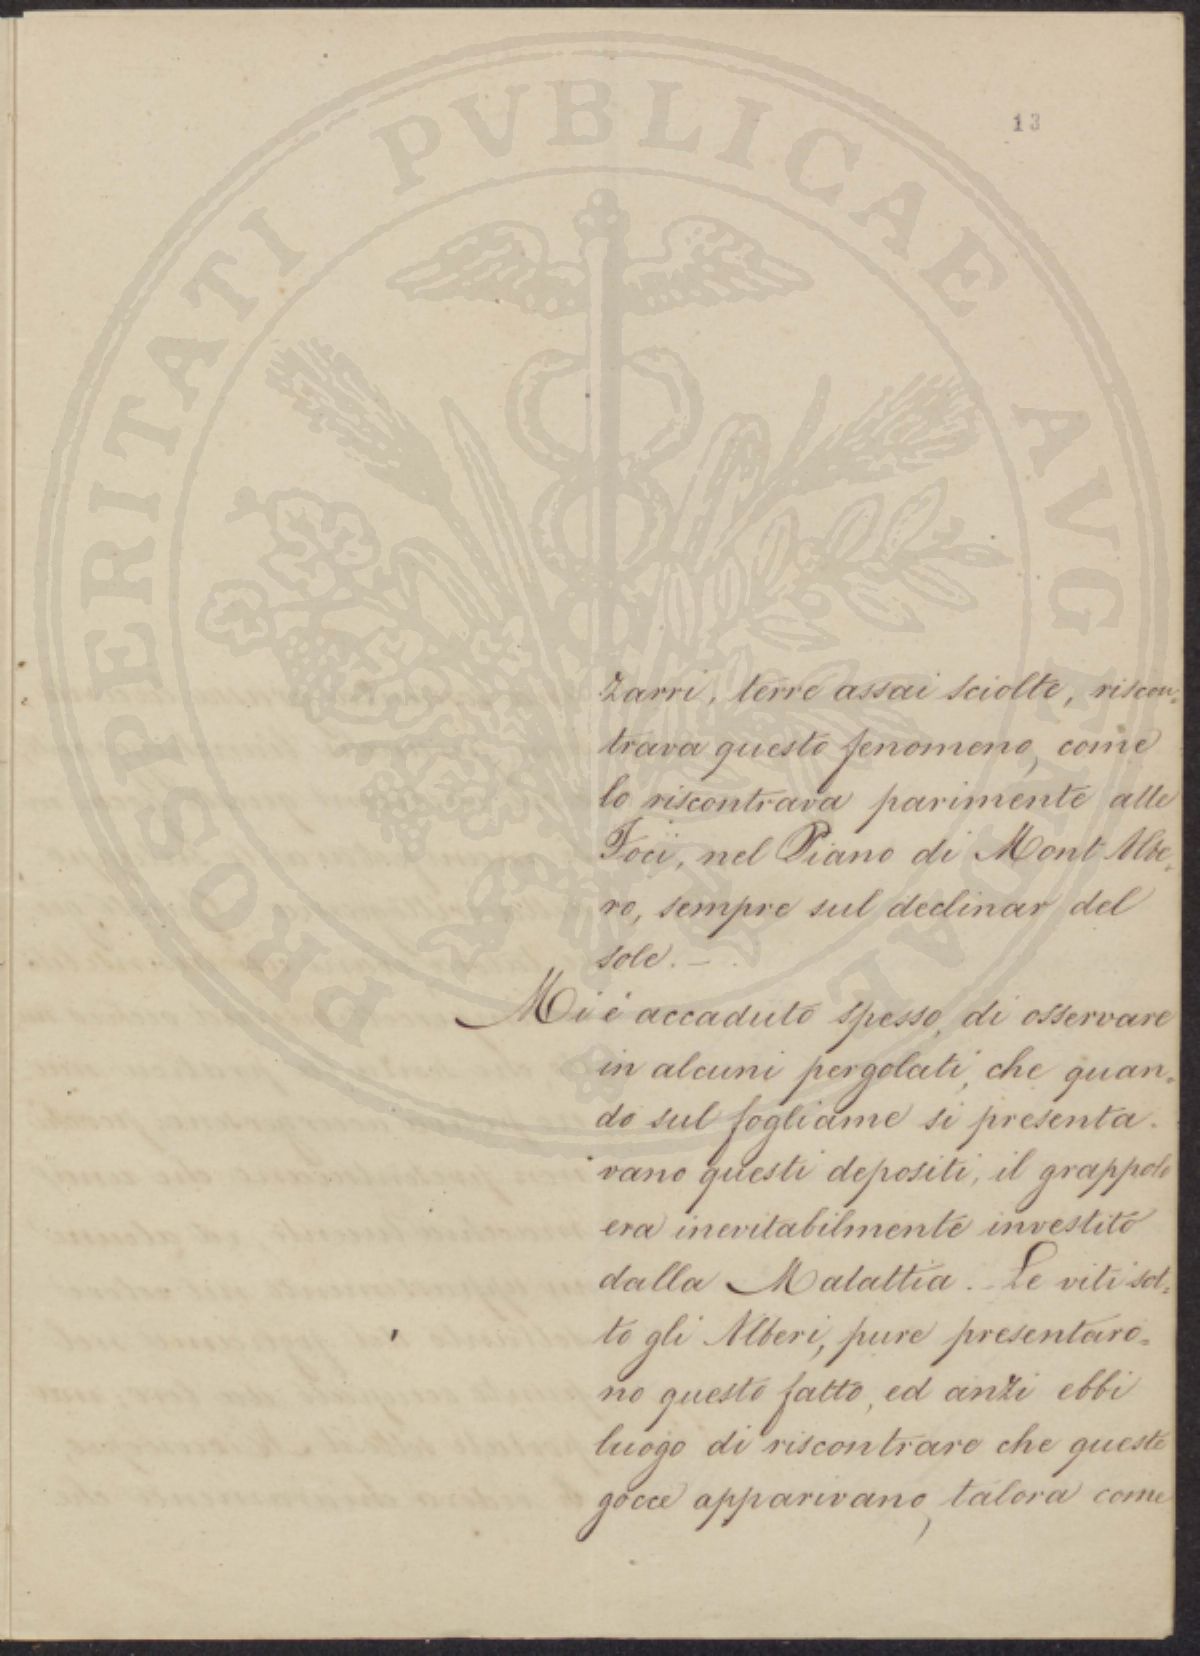 13
PROSPERITATI PUBLICAE AVGENDAE
Zarri, terre assai sciolte, riscon=
trava questo fenomeno, come
lo riscontrava parimente alle
Foci, nel Piano di Mont'Albe=
ro, sempre sul declinar del
sole. —
Mi è accaduto spesso, di osservare
in alcuni pergolati, che quan=
do sul fogliame si presenta=
vano questi depositi, il grappolo
era inevitabilmente investito
dalla Malattia. – Le viti sot=
to gli Alberi, pure presentaro=
no questo fatto, ed anzi ebbi
luogo di riscontrare che queste
gocce apparivano, talora come